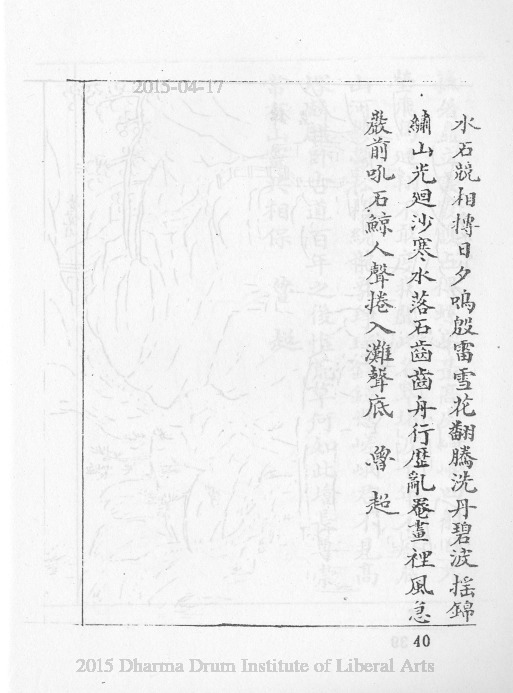 2015-04-17
水石競相摶日夕鳴殷雷雪花翻騰洗丹碧波搖錦
繡山光廻沙寒水落石齒齒舟行歷亂罨畫裡風急
嚴前吼石鯨人聲捲入灘聲底　魯超
40
2015 Dharma Drum Institute of Liberal Arts